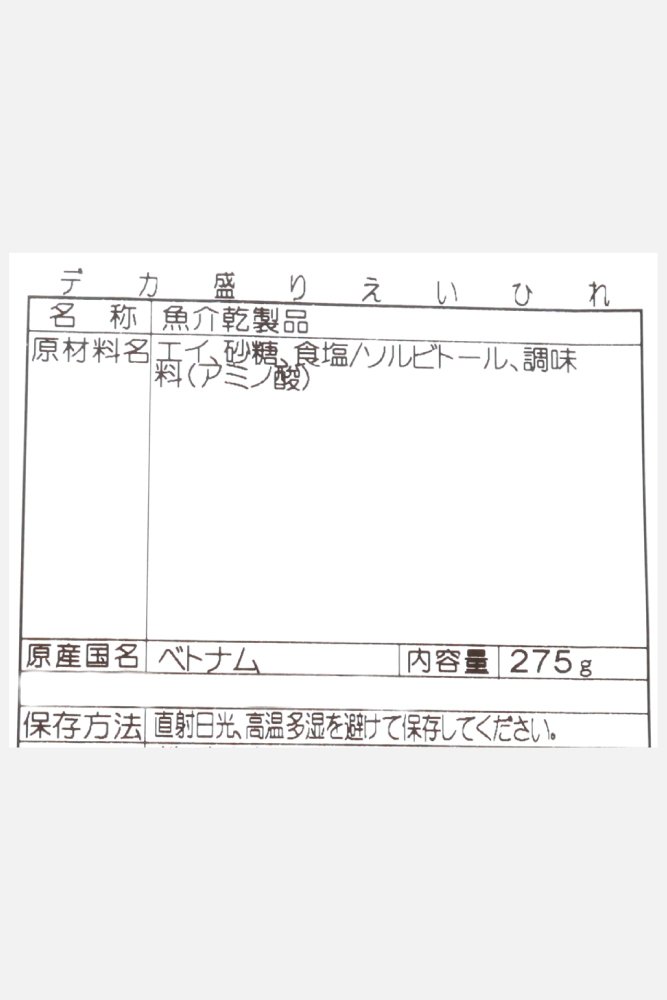 デカ盛りえいひれ
名称 魚介乾製品
原材料名 エイ、砂糖、食塩/ソルビトール、調味
料(アミノ酸)
原産国名 ベトナム 内容量 275g
保存方法 直射日光、高温多湿を避けて保存してください。